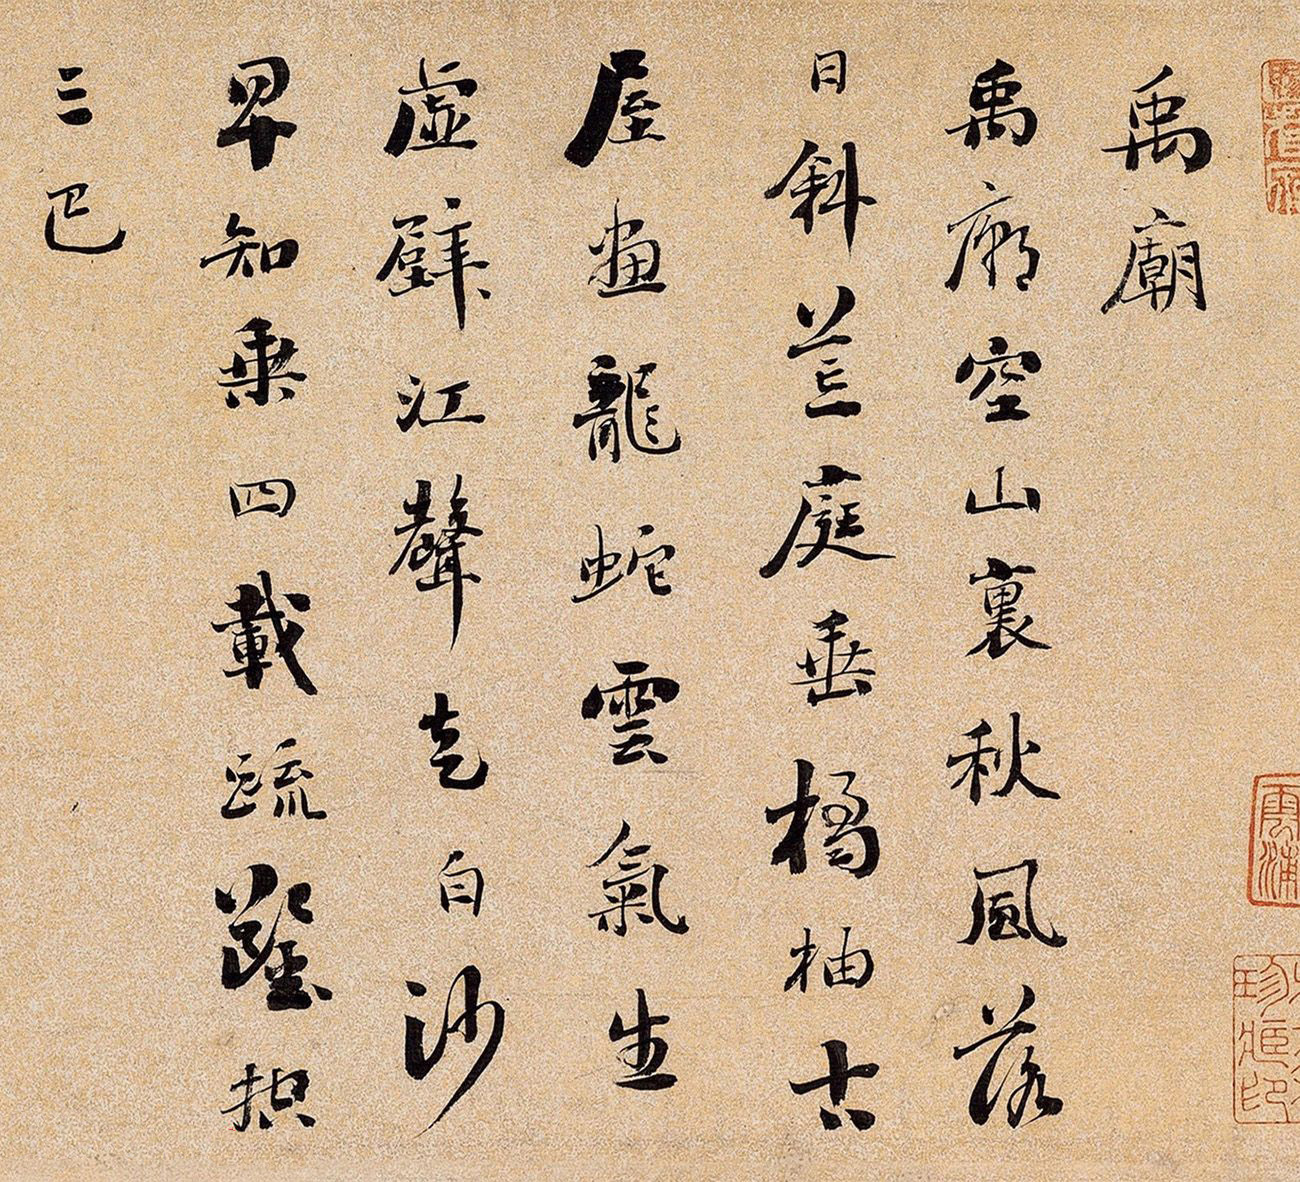 禹廟
禹廟空山裏秋風落
日斜荒庭垂橘柚古
屋畫龍蛇雲氣生
虛壁江聲走白沙
早知乘四載疏鑿控
三巴